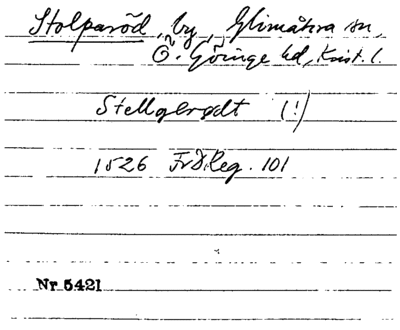 Stolparöd, by, Glimåkra sn,
Ö. Göinge hd, Krist. l.
Stellgerødt (!)
1526 Fr I Reg. 101
Nr 5421